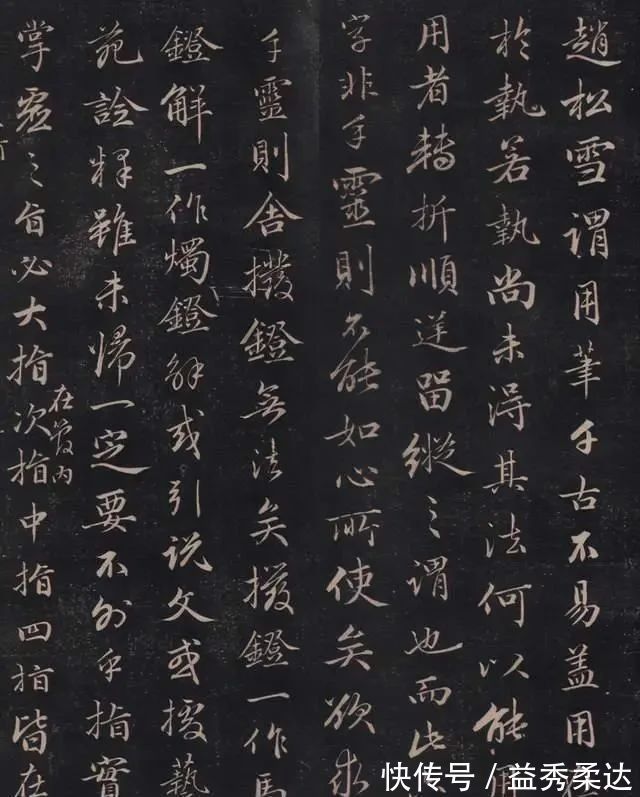 趙松雪謂用筆千古不易蓋用
於執若執尚未淂其法何以能用
用者轉折順逆留縱之謂也而此
字非手靈則不能如心所使矣欲求
手靈則舍撥鐙無法矣撥鐙一作馬
鐙解一作燭鐙解或引説文或援藝
苑詮釋雖未歸一定要不外乎指實
掌虛之旨必大指次指在管内中指四指皆在
快传号 / 益秀柔达